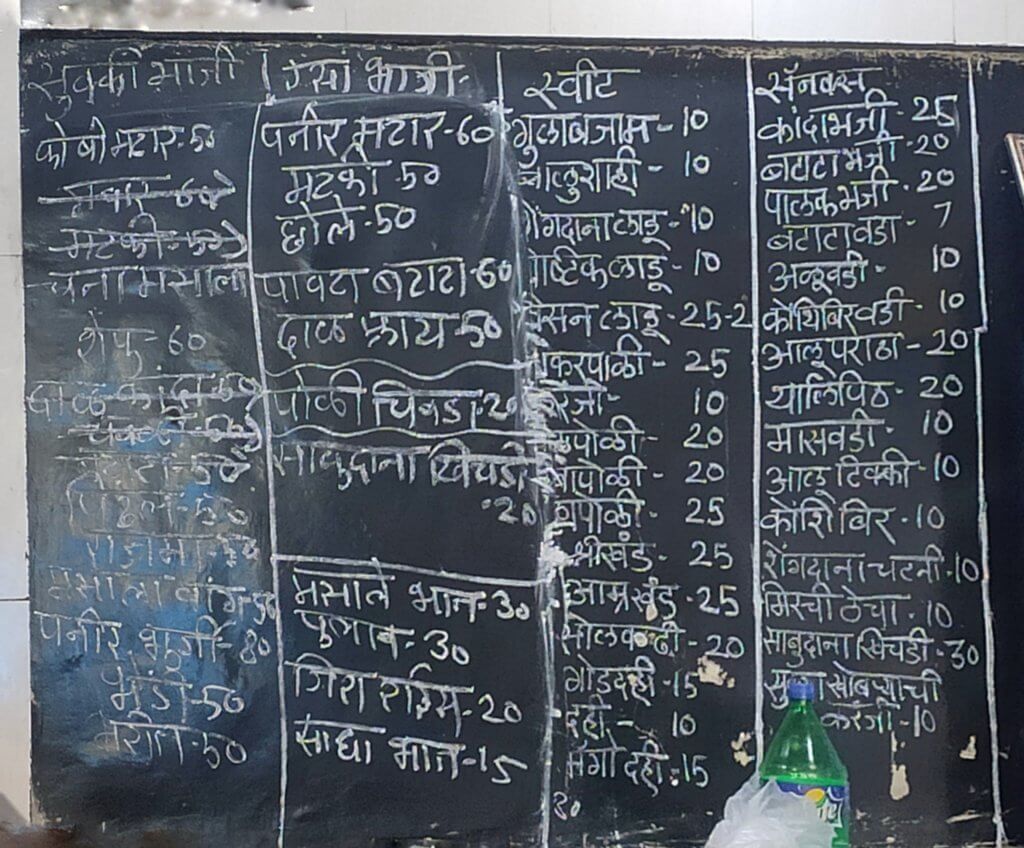 सुक्की भाजी
कोबी मटार-50
गवार-60
मटकी-50
चना मसाला
शेपु-60
दाळ कांदा-50
50
50
राजमा-50
मसाला वांग-50
पनीर भुर्गी-80
भेंडी-50
भरीत-50
रसा भाजी-
पनीर मटार-60
मटकी-50
छोले-50
पावटा बटाटा-60
दाळ फ्राय-50
पोळी चिवडा-20
साबुदाना खिचडी
-20
मसाले भात-30
पुलाव-30
जिरा राईस-20
साधा भात-15
स्वीट
गुलाबजाम-10
बालुशाही-10
शेंगदाना लाडू-10
पौष्टिक लाडू-10
बेसन लाडू-25-2
शंकरपाळी-25
करंजी-10
पोळी-20
पोळी-20
पोळी-25
श्रीखंड-25
आम्रखंड-25
सोलकढी-20
गोड दही-15
दही-10
मँगो दही-15
20
सॅनक्स
कांदाभजी-25
बटाटा भजी-20
पालक भजी-20
बटाटा वडा-7
अळूवडी-10
कोथिंबिर वडी-10
आलू पराठा-20
थालिपिठ-20
मासवडी-10
आलू टिक्की-10
कोशिंबिर-10
शेंगदाना चटनी-10
मिरची ठेचा-10
साबुदाना खिचडी-30
खोबऱ्याची
करंजी-10